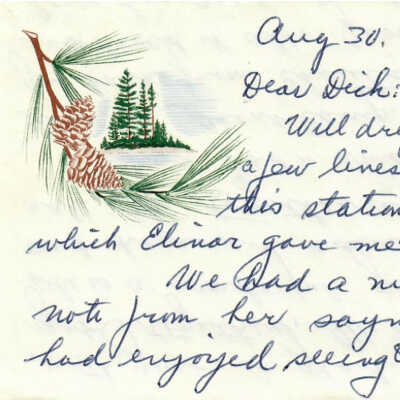 Aug 30.
Dear Dick:
Will dr
a few lines
this station
which Elinor gave me
We had a n
note from her sayn
had enjoyed seeing